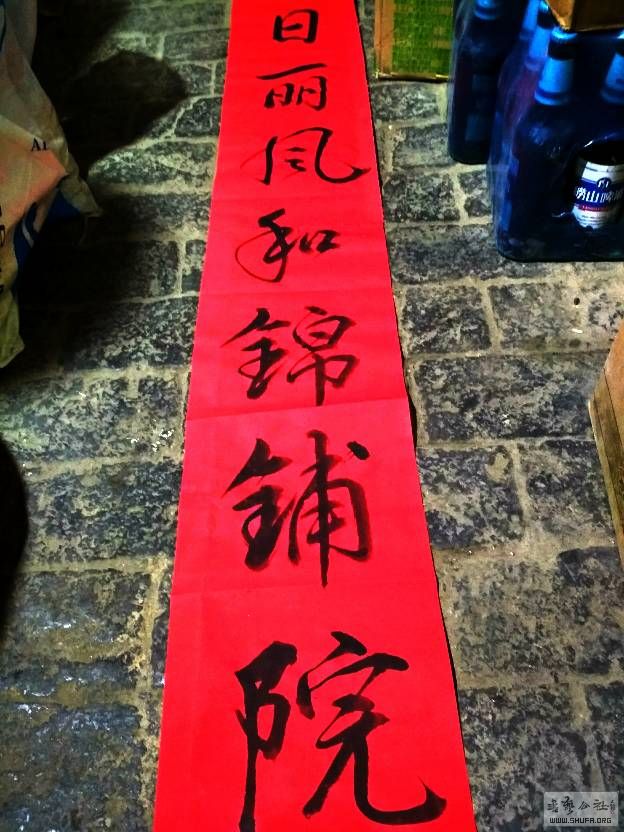 日丽风和锦铺院
崂山啤酒
WWW.SHUFA.ORG